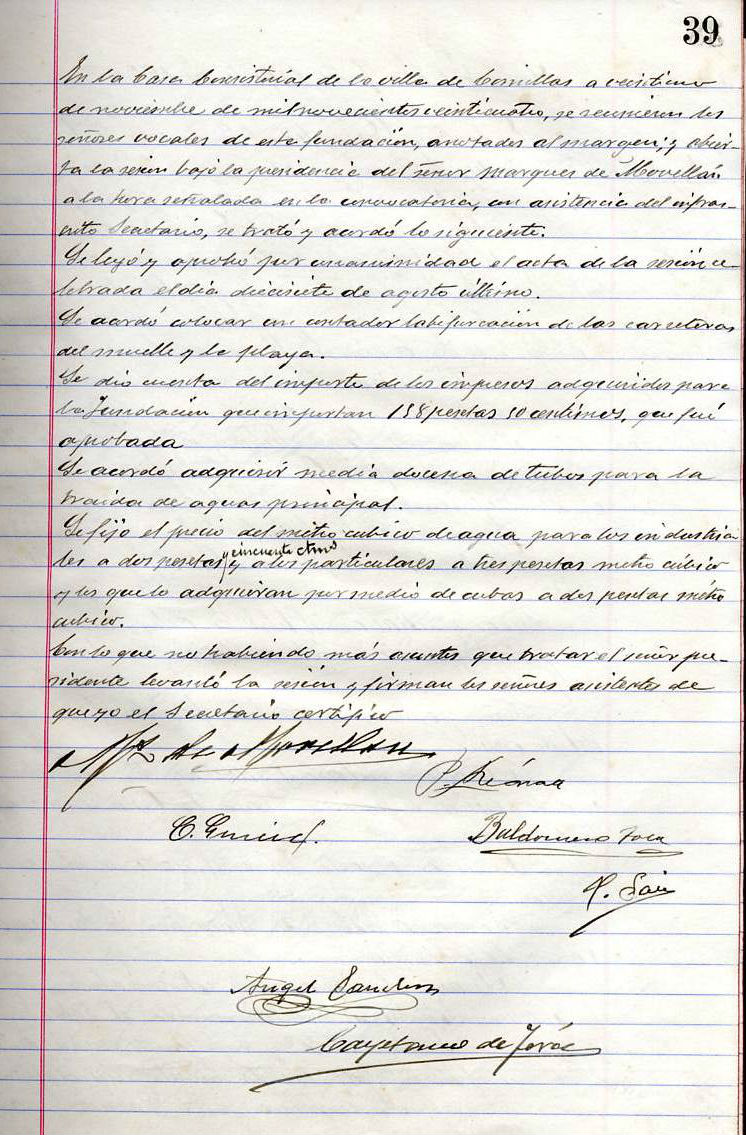 39
En la Casa Consistorial de la villa de Comillas a veintiuno
de noviembre de mil novecientos veinticuatro, se reunieron los
señores vocales de esta fundación, anotados al margen; y abier-
ta la sesion bajo la presidencia del señor marques de Movellán
a la hora señalada en la convocatoria, con asistencia del infras-
crito Secretario, se trató y acordó lo siguiente.
Se leyó y aprobó por unanimidad el acta de la sesión ce-
lebrada el dia diecisiete de agosto último.
Se acordó colocar un contador bifurcación de las carreteras
del muelle y la playa.
Se dio cuenta del importe de los impresos adquiridos para
la Fundación que importan 158 pesetas 50 centimos, que fué
aprobada
Se acordó adquirir media docena de tubos para la
traida de aguas principal.
Se fijo el precio del metro cubico de agua para los industria-
les a dos pesetas y cincuenta ctmos y a los particulares a tres pesetas metro cúbico
y los que lo adquieran por medio de cubas a dos pesetas metro
cubico.
Con lo que no habiendo más asuntos que tratar el señor pre-
sidente levantó la sesión y firman los señores asistentes de
que yo el Secretario certifico
Mqs de Movellan
Baldomero
Angel Sanchez
Cayetano de